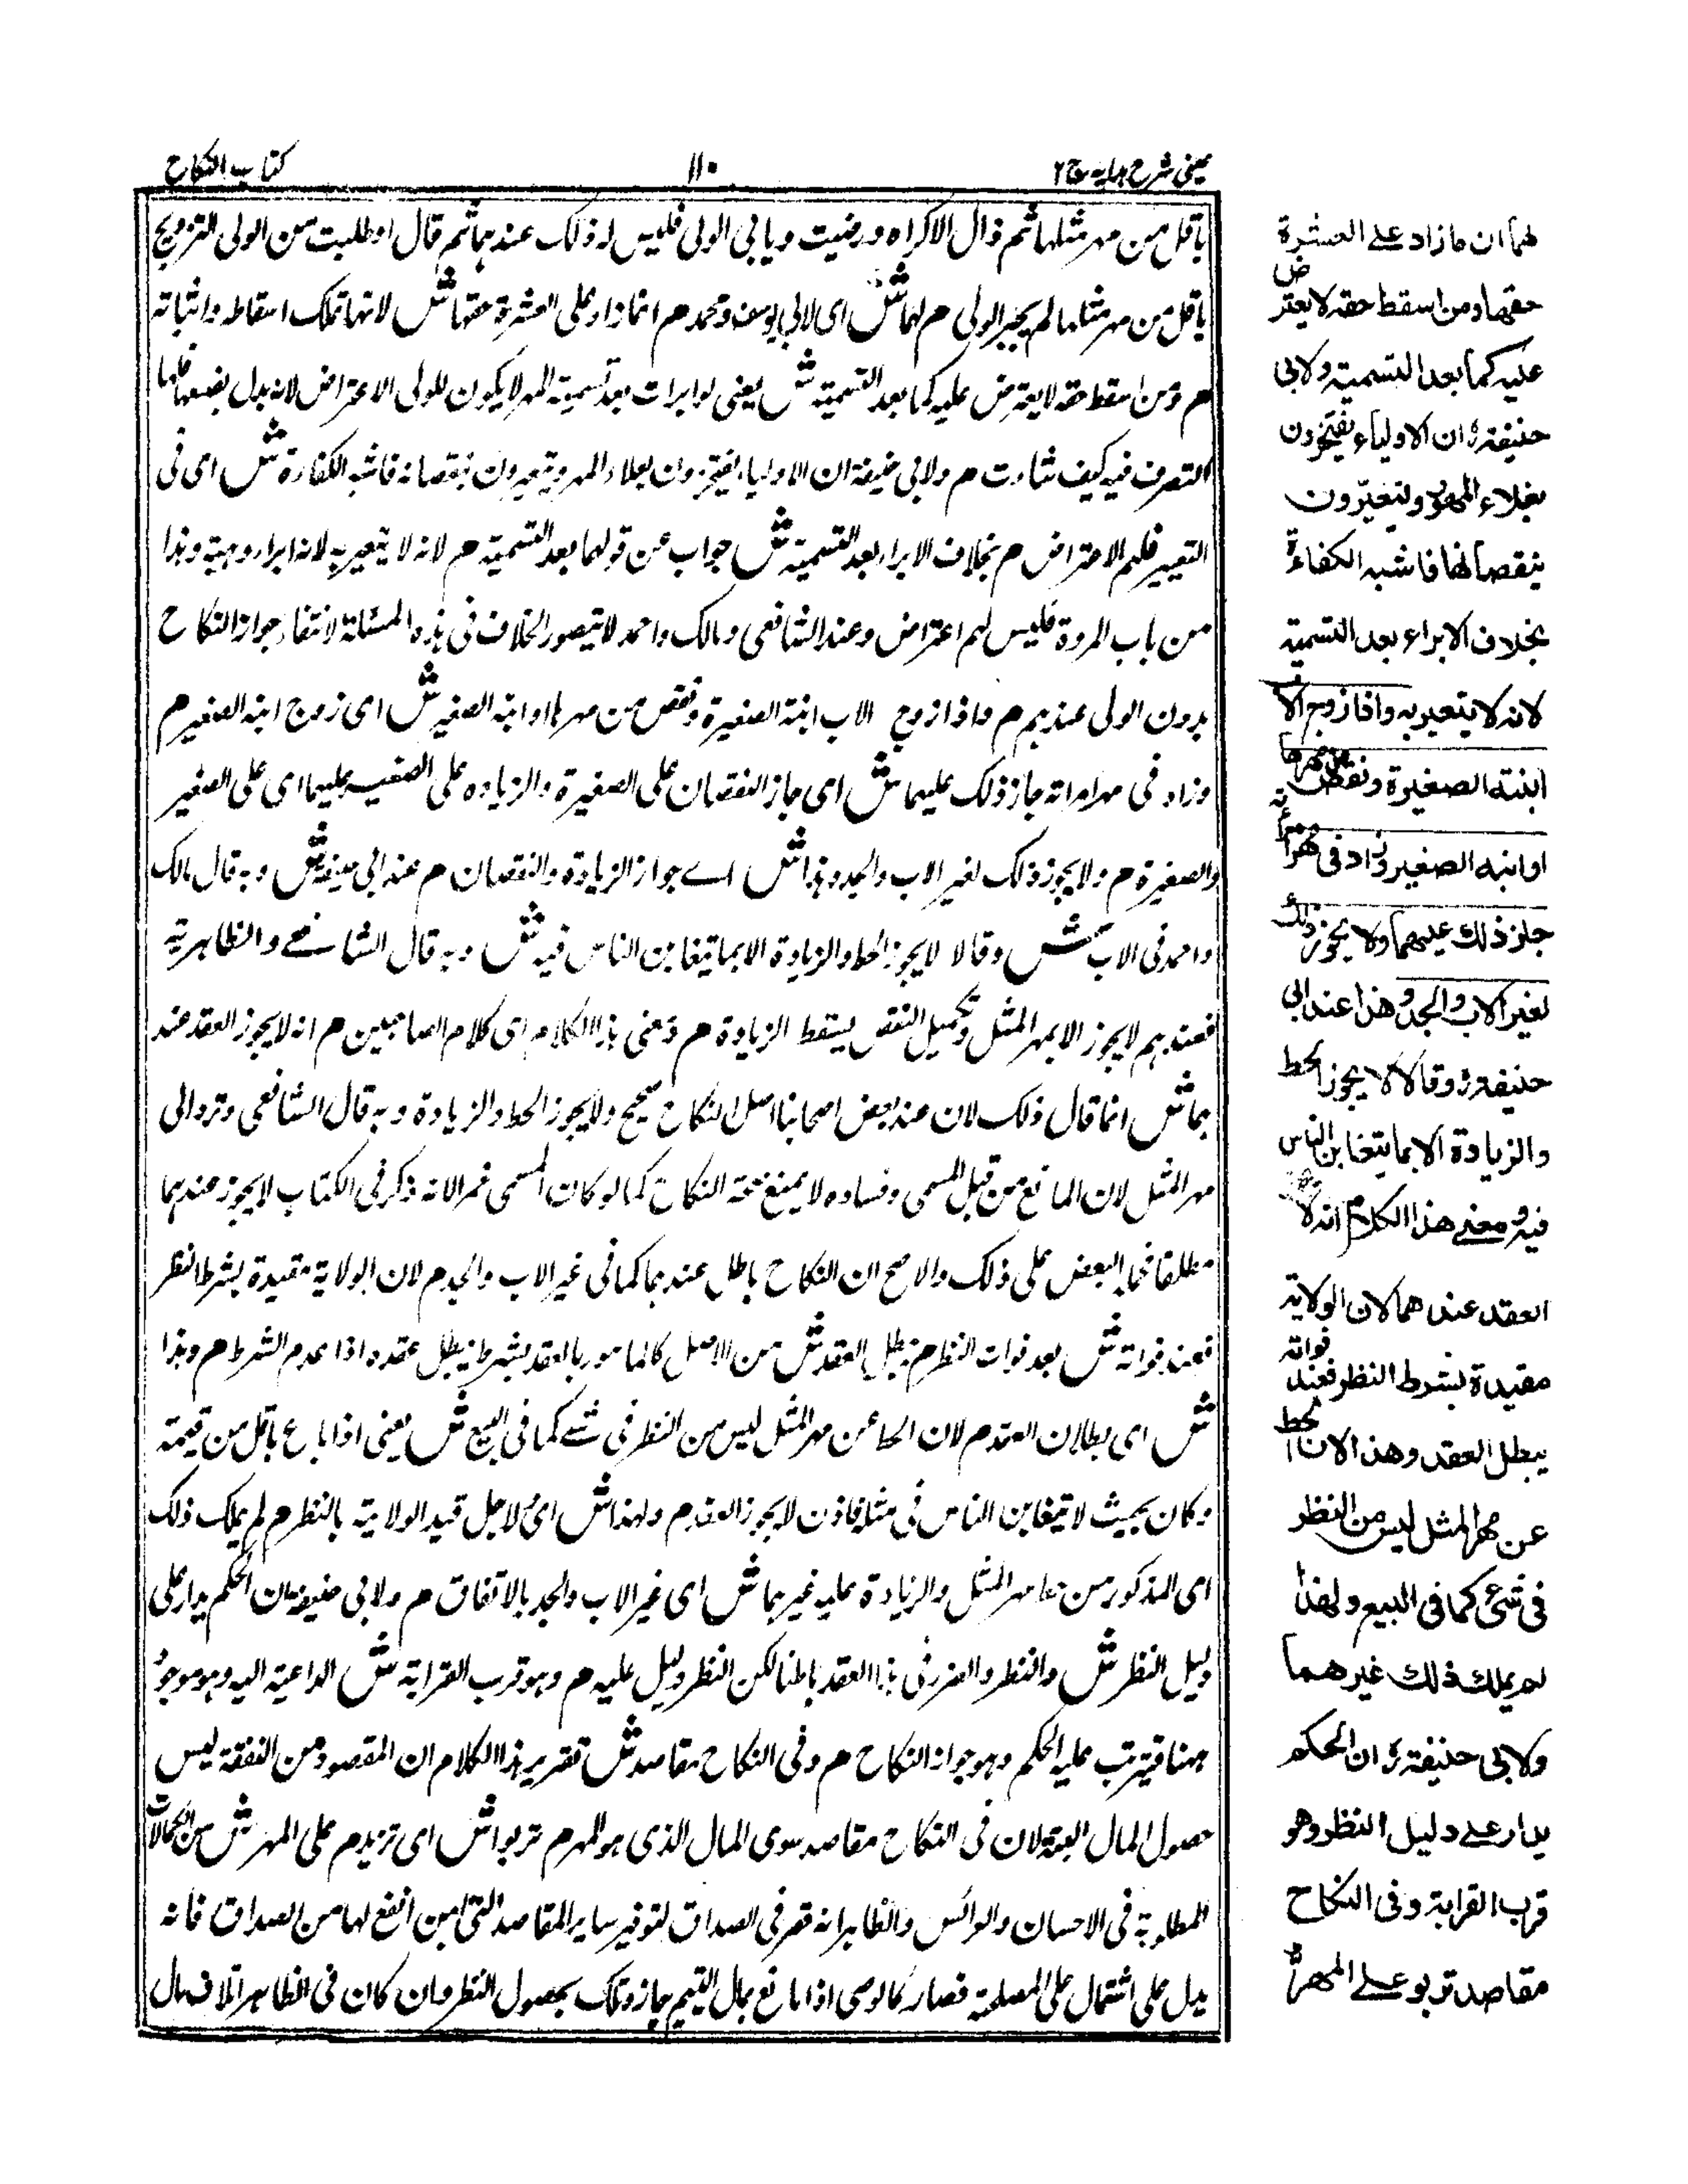 عينى شرح هدايه ج ٢
١١٠
كتاب النكاح
باقل من مهر مثلها ثم زال الاكراه ورضيت ويابى الولى فليس له ذلك عندهما ثم قال او طلبت من الولى التزويج
باقل من مهر مثلها لم يجبر الولى م لهما ش اى لابى يوسف ومحمد م ان ما زاد على العشرة حقها ش لانها تملك اسقاطه واثباته
م ومن اسقط حقه لا يعترض عليه كما بعد التسمية ش يعنى لو ابرات بعد تسمية المهر لا يكون للولى الاعتراض لانه بدل بضعها فلها
التصرف فيه كيف شاءت م ولابى حنيفة ان الاولياء يفتخرون بغلاء المهر ويتعيرون بنقصانه فاشبه الكفاءة ش اى فى
التعيير فلهم الاعتراض م بخلاف الابراء بعد التسمية ش جواب عن قولهما بعد التسمية م لانه لا يتعير به لانه ابراء وهبة وهذا
من باب المروة فليس لهم اعتراض وعند الشافعى ومالك واحمد لا يتصور الخلاف فى هذه المسئلة لانتفاء جواز النكاح
بدون الولى عندهم م واذا زوج الاب ابنته الصغيرة ونقص من مهرها او ابنه الصغير ش اى زوج ابنه الصغير م
وزاد فى مهر امراته جاز ذلك عليهما ش اى جاز النقصان على الصغيرة والزياده على الصغير عليهما اى على الصغير
والصغيرة م ولا يجوز ذلك لغير الاب والجد وهذا ش اے جواز الزيادة والنقصان م عند ابى حنيفة ش وبه قال مالك
واحمد فى الاب ش وقالا لا يجوز الحط والزيادة الا بما يتغابن الناس فيه ش وبه قال الشافعے والظاهرية
فعندهم لا يجوز الا بمهر المثل وتكميل النقص يسقط الزيادة م ومعنى هذا الكلام اى كلام الصاحبين م انه لا يجوز العقد عند
هما ش انما قال ذلك لان عند بعض اصحابنا اصل النكاح صحيح ولا يجوز الحط والزيادة وبه قال الشافعى وترد الى
مهر المثل لان المانع من قبل المسمى وفساده لا يمنع صحة النكاح كما لو كان المسمى خمرا لانه ذكر فى الكتاب لا يجوز عندهما
مطلقا البعض على ذلك والاصح ان النكاح باطل عندهما كما فى غير الاب والجد م لان الولاية مقيدة بشرط النظر
فعند فواته ش بعد فوات النظر م يبطل العقد ش من الاصل كالمامور بالعقد بشرط يبطل عقده اذا عدم الشرط م وهذا
ش اى بطلان العقد م لان الحط عن مهر المثل ليس من النظر فى شے كما فى البيع ش يعنى اذا باع باقل من قيمته
وكان بحيث لا يتغابن الناس فى مثله لا يجوز العقد م ولهذا ش اى لاجل قيد الولاية بالنظر م لم يملك ذلك
اى المذكور من حط مهر المثل والزيادة عليه غيرهما ش اى غير الاب والجد بالاتفاق م ولابى حنيفة ان الحكم يدار على
دليل النظر ش والنظر والضرر فى هذا العقد باطنا لكن النظر دليل عليه م وهو قرب القرابة ش الداعية اليه وهو موجود
ههنا فيترتب عليه الحكم وهو جواز النكاح م وفى النكاح مقاصد ش تقرير هذا الكلام ان المقصود من النفقة ليس
حصول المال البتة لان فى النكاح مقاصد سوى المال الذى هو المهر م تربو ا ش اى تزيد م على المهر ش من الكمالات
المطلوبة فى الاحسان والظاهر انه قصر فى الصداق لتوفير ساير المقاصد التى هن انفع لها من الصداق فانه
يدل على اشتمال على المصلحة فصار كالوصى اذا صانع بمال اليتيم جاز وتملك بحصول النظر وان كان فى الظاهر اتلاف مال
لهما ان ما زاد على العشرة
حقها ومن اسقط حقه لا يعترض
عليه كما بعد التسمية ولابى
حنيفةؒ ان الاولياء يفتخرون
بغلاء المهور ويتعيّرون
بنقصانها فاشبه الكفاءة
بخلاف الابراء بعد التسمية
لانه لا يتعير به واذا زوج الاب
ابنته الصغيرة ونقص من مهرها
او ابنه الصغير وزاد فى مهر امرأته
جاز ذلك عليهما ولا يجوز ذلك
لغير الاب والجد وهذا عند ابى
حنيفةؒ وقالا لا يجوز الحط
والزيادة الا بما يتغابن الناس
فيه ومعنى هذا الكلام انه لا
العقد عندهما لان الولاية
مقيدة بشرط النظر فعند فواته
يبطل العقد وهذا لان الحط
عن مهر المثل ليس من النظر
فى شئ كما فى البيع ولهذا
لم يملك ذلك غيرهما
ولابى حنيفةؒ ان الحكم
يدار على دليل النظر وهو
قرب القرابة وفى النكاح
مقاصد تربو على المهر